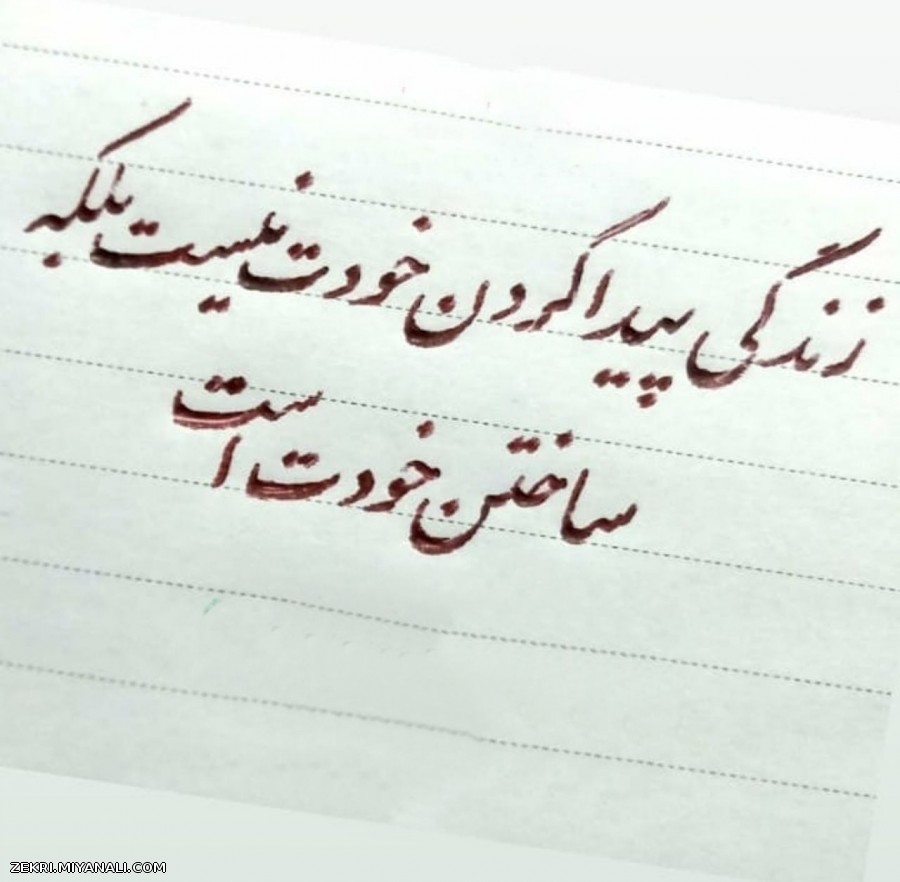 زندگی پیدا کردن خودت نیست بلکه
ساختن خودت است
ZEKRI.MIYANALI.COM